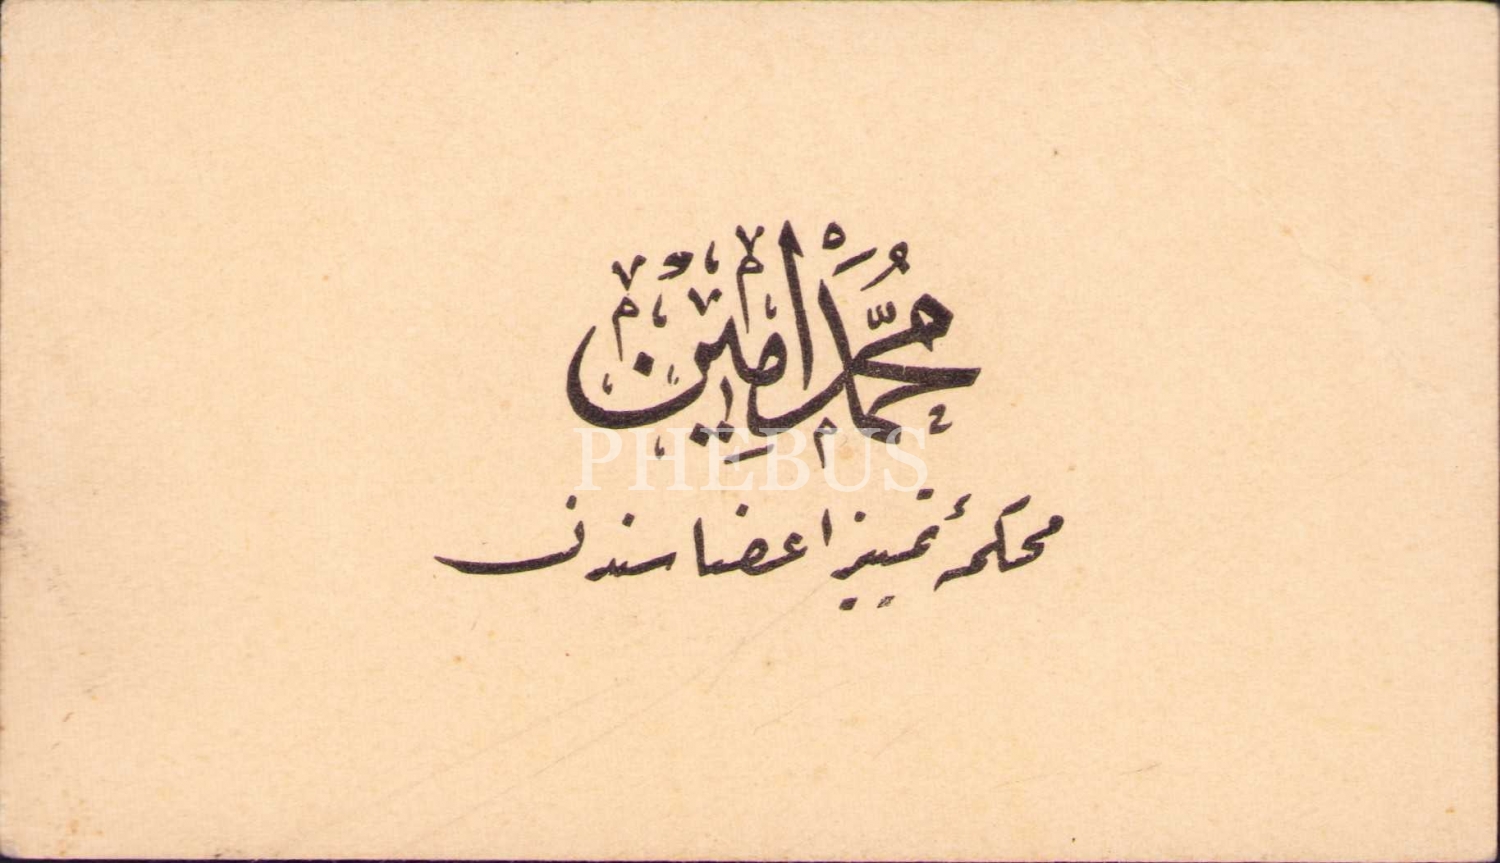 مُحَمَّد امين
PHEBUS
محكمۀ تمييز اعضاسندن